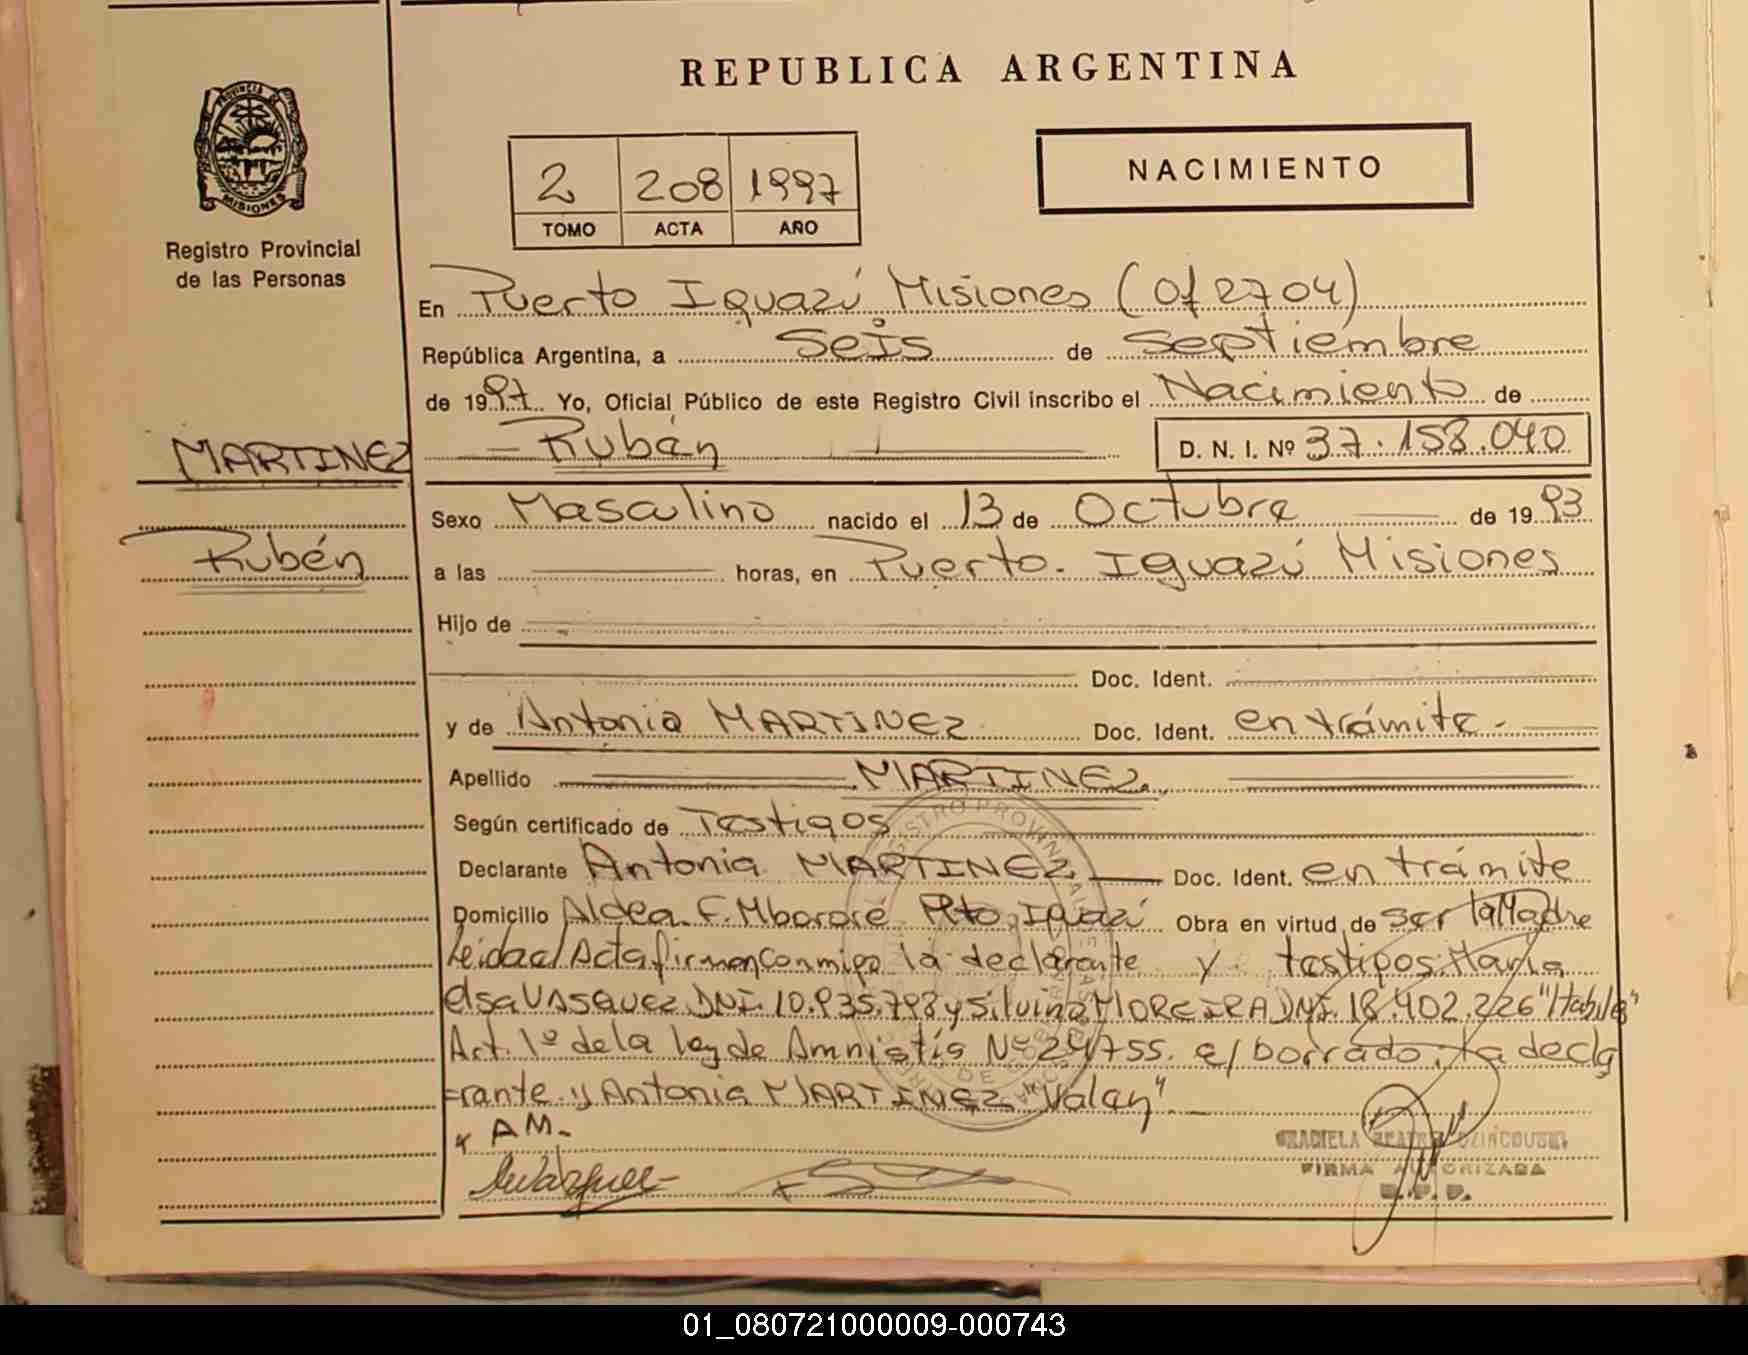 REPUBLICA ARGENTINA
PROVINCIA DE
MISIONES
Registro Provincial
de las Personas
2 208 1997
TOMO ACTA AÑO
NACIMIENTO
En Puerto Iguazú Misiones (Of 2704)
República Argentina, a Seis de Septiembre
de 1997 Yo, Oficial Público de este Registro Civil inscribo el Nacimiento de
Rubén D. N. I. Nº 37.158.040
MARTINEZ
Rubén
Sexo Masculino nacido el 13 de Octubre de 1993
a las horas, en Puerto. Iguazú Misiones
Hijo de
Doc. Ident.
y de Antonia MARTINEZ Doc. Ident. en trámite.
Apellido MARTINEZ.
Según certificado de Testigos
Declarante Antonia MARTINEZ Doc. Ident. en trámite
Domicilio Aldea F. Mbororé Pto. Iguazú Obra en virtud de ser la Madre
Leida el Acta firman conmigo la declarante y testigos: María
elsa VASQUEZ DNI. 10.935.798 y Silvina MOREIRA DNI. 18.402.226 "Habiles"
Art. 1º de la ley de Amnistía Nº 24755. e/ borrado: la decla
rante y Antonia MARTINEZ "Valen"
AM.
FIRMA AUTORIZADA
R.P.P.
01_080721000009-000743